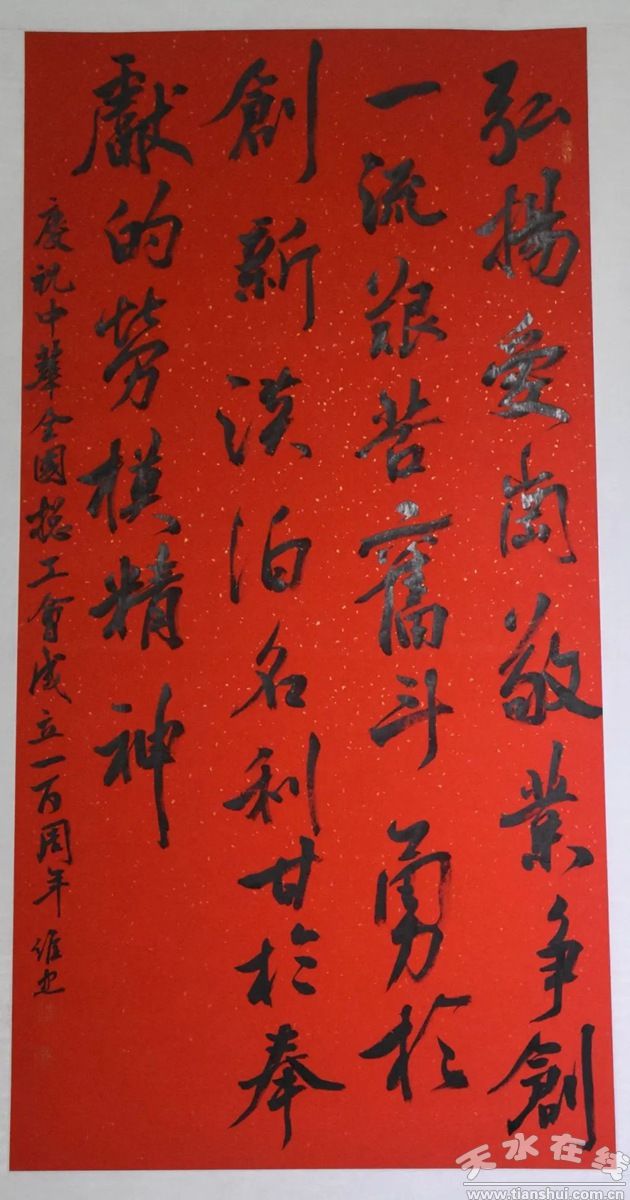 弘揚愛崗敬業争創
一流艰苦奮斗勇於
創新淡泊名利甘於奉
獻的勞模精神
慶祝中華全國总工會成立一百周年
天水在线
www.tianshui.com.cn